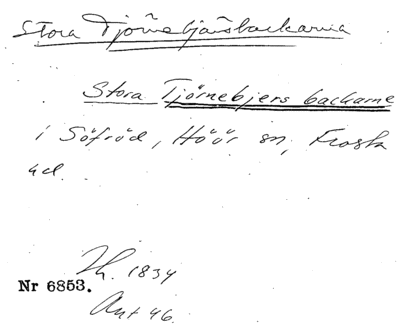 Stora Tjörnebjärsbackarna
Stora Tjörnebjers backarne
i Söfröd, Höör sn, Frosta
hd.
Lh. 1834
Nr 6853.
Ant 46.